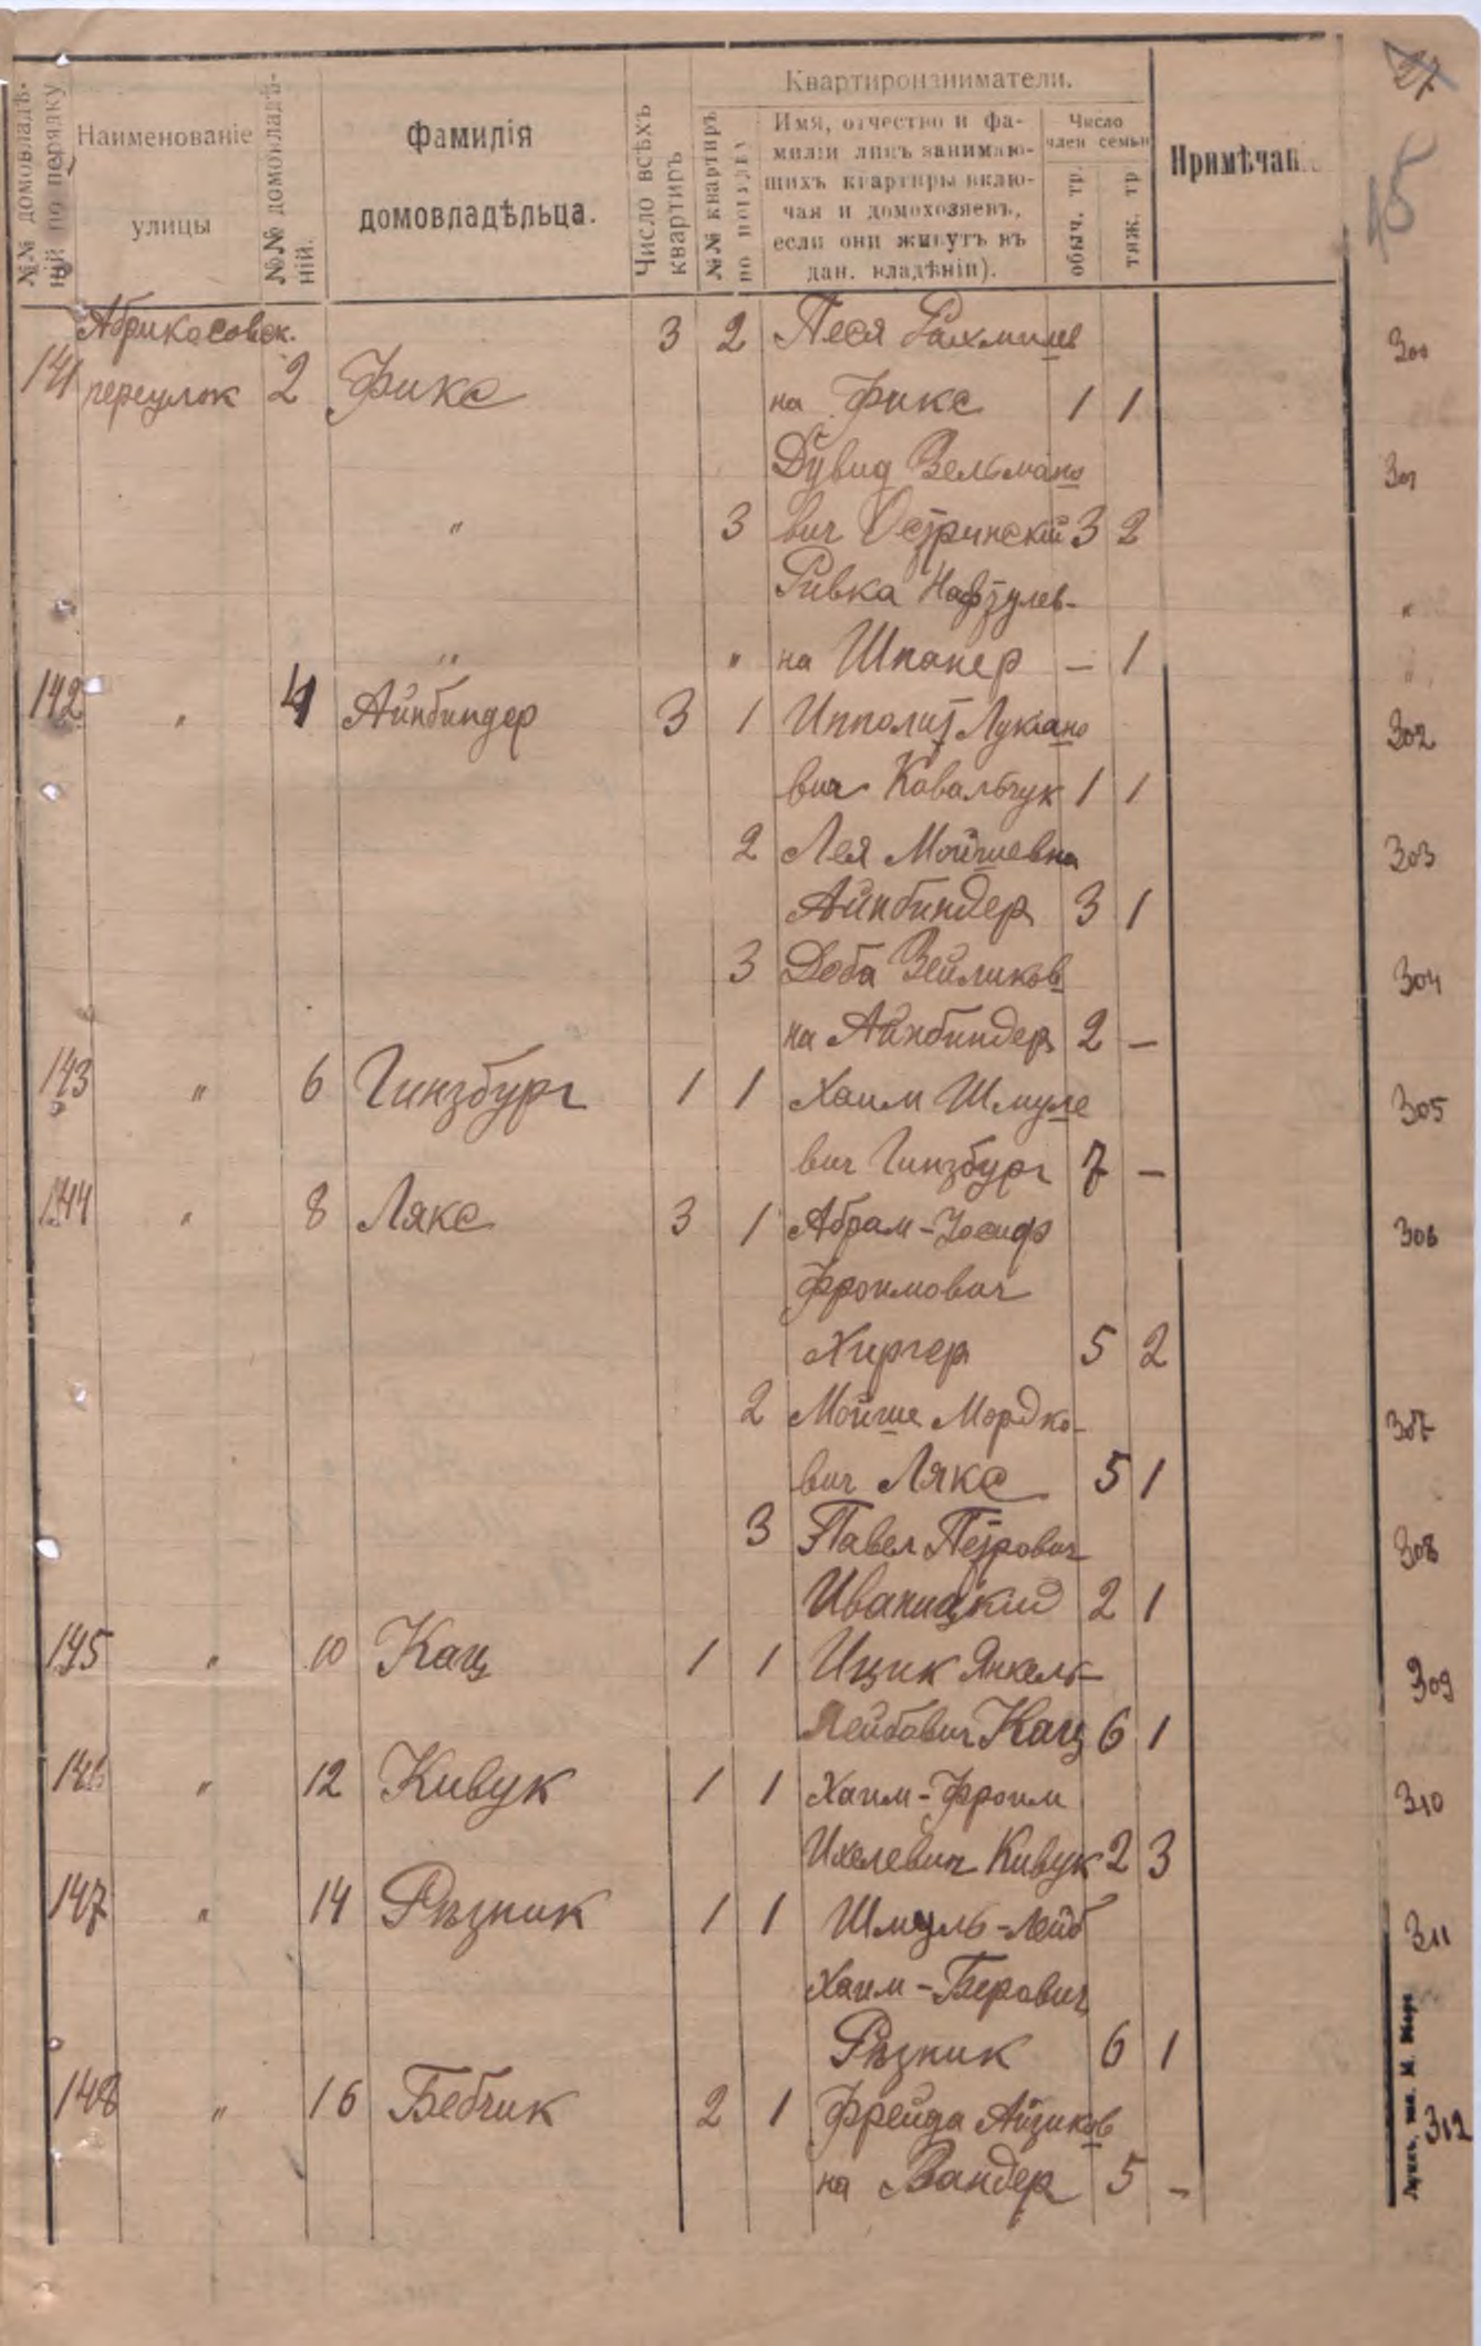 27
45
№№ домовладѣ-ній по порядку
Наименованіе улицы
№№ домовладѣ-ній.
Фамилія домовладѣльца.
Число всѣхъ квартиръ
Квартиронаниматели.
№№ квартиръ по порядку
Имя, отчество и фа-
миліи лицъ занимаю-
щихъ квартиры вклю-
чая и домохозяевъ,
если они живутъ въ
дан. владѣніи).
Число член семьи
обыч. тр.
тяж. тр
Примѣчані
Абрикосовск. 3 2 Песя Рахмилев 300
141 переулок 2 Фикс на Фикс 1 1
Дувид Зельмано 301
" 3 вич Остринский 3 2
Ривка Нафтулев- "
" " на Шпанер - 1 "
142 " 4 Айнбиндер 3 1 Ипполит Лукіано 302
вич Ковальчук 1 1
2 Лея Мойшевна 303
Айнбиндер 3 1
3 Доба Зейликов 304
на Айнбиндер 2 -
143 " 6 Гинзбург 1 1 Хаим Шмуле 305
вич Гинзбург 7 -
144 " 8 Лякс 3 1 Абрам-Іосиф 306
Фроимович
Хиргер 5 2
2 Мойше Мордко- 307
вич Лякс 5 1
3 Павел Петрович 308
Иваницкий 2 1
145 " 10 Кац 1 1 Ицик Янкель- 309
Лейбович Кац 6 1
146 " 12 Кивук 1 1 Хаим-Фроим 310
Ихелевич Кивук 2 3
147 " 14 Рѣзник 1 1 Шмуль-Лейб 311
Хаим-Берович
Рѣзник 6 1
148 " 16 Бебчик 2 1 Фрейда Айзиков 312
на Вандер 5 -